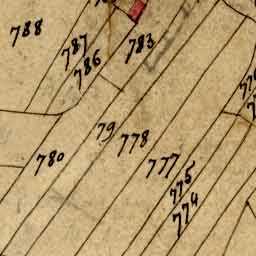 788
787
786
783
79
778
780
777
775
774